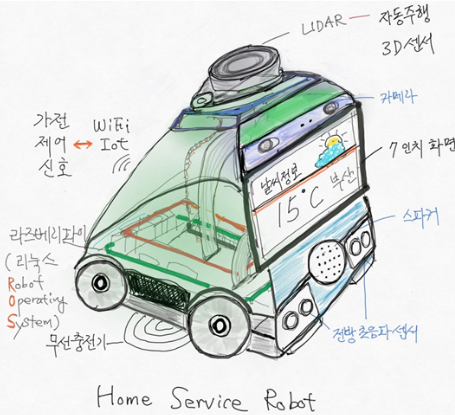 LIDAR — 자동주행
3D센서
카메라
가전
제어 ↔ WiFi
신호 IoT
7인치 화면
날씨정보
15°C 부산
스피커
라즈베리파이
(리눅스
Robot
Operating
System)
무선충전기
전방초음파센서
Home Service Robot